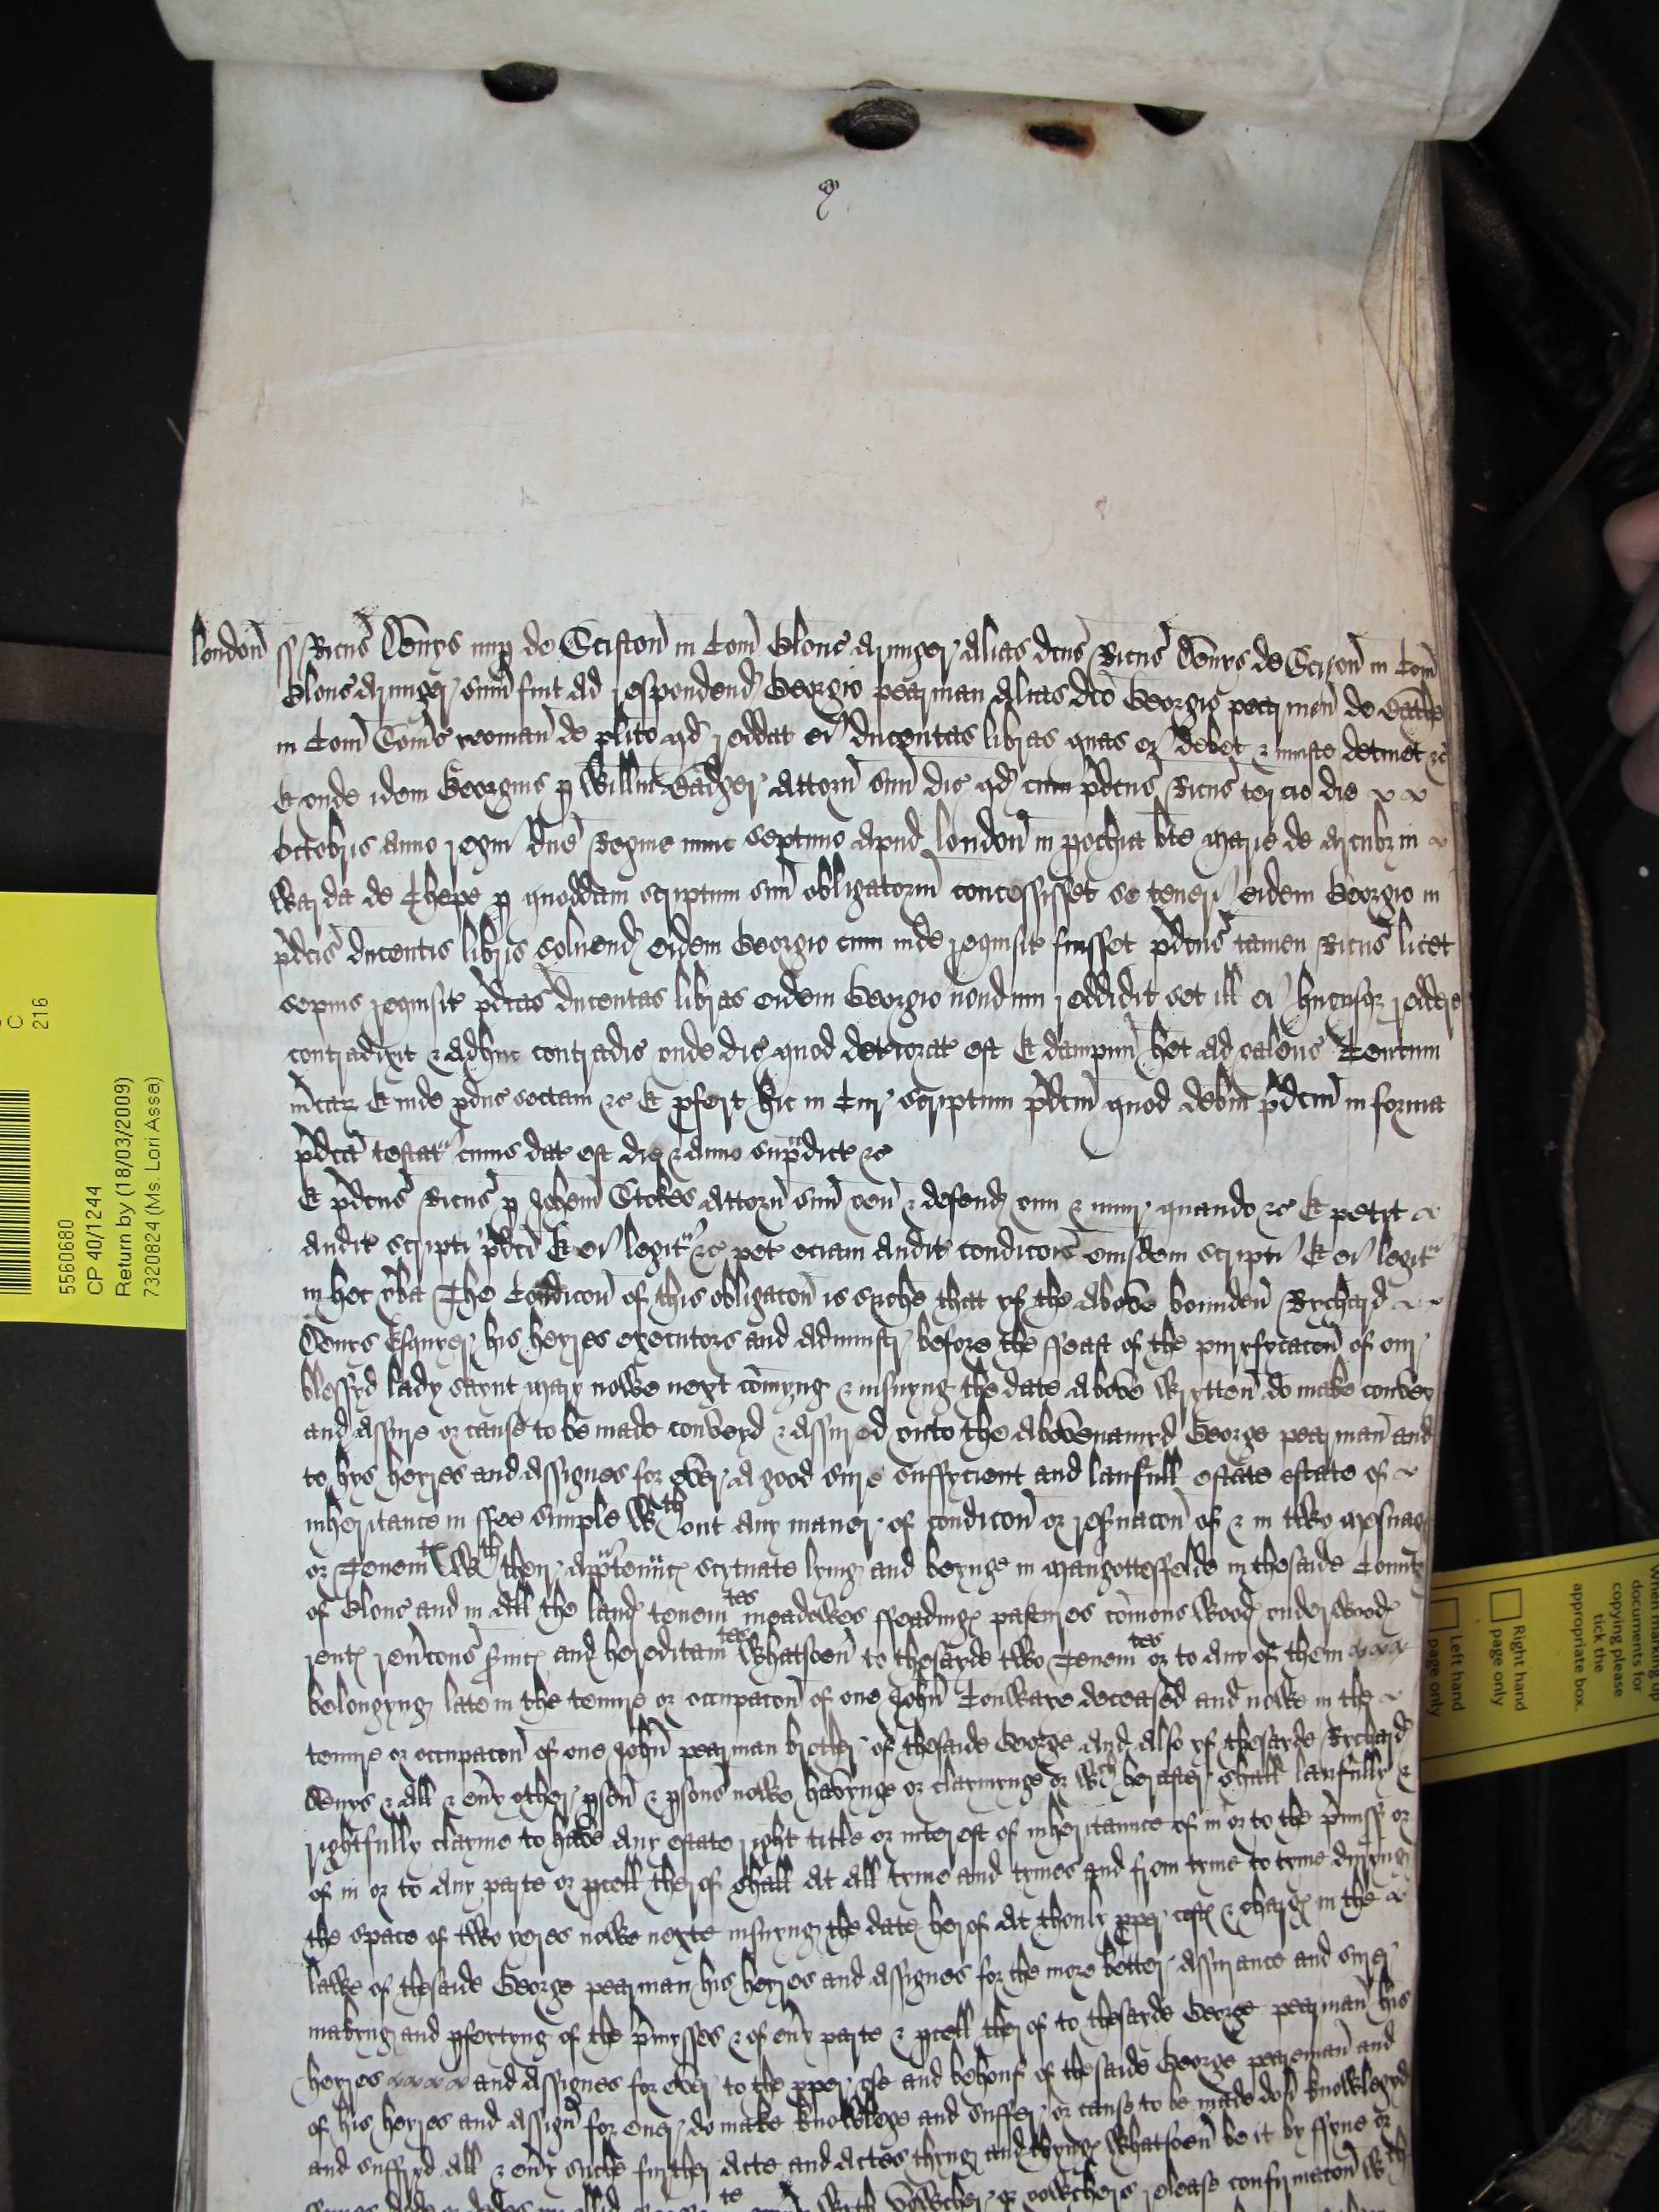 london ss Ricus Denys nup de Sciston in Com Glouc Armiger alias dcus Ricus Denys de Sciston in Com
Glouc Armiger sum fuit ad respondend Georgio pearman alias dco Georgio pearmen de Bathe
in Com Soms yeoman de plito qd reddat ei ducentas libras quas ei debet & iniuste detinet &c
Et unde idem Georgius p Willm Attorn suu dic qd cum pdcus Ricus tercio die
Octobris anno regni dne Regine nunc septimo apud london in pochia bte marie de arcubz in
Warda de Chepe p quoddam scriptum suu obligatoriu concessisset se teneri eidem Georgio in
pdcis ducentis libris solvend eidem Georgio cum inde requisit fuisset pdcus tamen Ricus licet
sepius requisit pdcas ducentas libras eidem Georgio nondum reddidit set ill ei hucusqz reddere
contradixit & adhuc contradic unde dic quod deteriorat est Et dampnu het ad valenc Centum
mcarz Et inde pduc sectam &c Et pfert hic in Cur scriptum pdcm quod debm pdcm in forma
pdca testat cuius dat est die & anno supadict &c
Et pdcus Ricus p Johem Stokes Attorn suu ven & defend vim & iniur quando &c Et petit
audit scripti pdci Et ei legit &c pet eciam audit condicois eiusdem scripti Et ei legit
in hec vba The Condicon of this obligacon is suche that yf the above bounden Rychard
Denys Esquyer his heyres executors and administr before the ffeast of the puryfycacon of our
blessyd lady saynt mary nowe next comyng & insuyng the date above wrytten do make convey
and assure or cause to be made conveyd & assured unto the abovenamyd George pearman and
to hys heyres and assignes for ever a good sure suffycient and laufull estate estate of
inheritance in ffee simple wthout any maner of condicon or resvacon of & in two mesuag
or Tenemtes wth ther apptennces scytuate lying and beynge in mangottesfelde in thesaide Counte
of Glouc and in all the landes tenemtes meadowes ffeadinges pastures comons woodes underwoodes
rentes revcons svices and hereditamtes whatsoev to thesayde two Tenemtes or to any of them
belongyng late in the tenure or occupacon of one John deceased and nowe in the
tenure or occupacon of one John pearman brother of thesaide George And also yf thesayde Rychard
Denys & all & evy other pson & psons nowe havynge or claymynge or wch herafter shall laufully &
rightfully clayme to have any estate right title or interest of inheritaunce of in or to the pmiss or
of in or to any parte or pcell therof shall at all tyme and tymes and from tyme to tyme duryng
the space of two yeres nowe nexte insuyng the date herof at thonly pper costes & charges in the
lawe of thesaide George pearman his heyres and assignes for the more better assurance and surer
makyng and pfectyng of the pmysses & of evy parte & pcell therof to thesayde George pearman his
heyres and assignes for ever to the pper use and behouf of thesaide George peareman and
of his heyres and assigns for ever do make knowlege and suffer or cause to be made don knowlegyd
and suffryd all & evy suche further acte and actes thyng and thynges whatsoev be it by ffyne or
vowcher or vowchers release confirmacon wth
5560680
CP 40/1244
Return by (18/03/2009)
7320824 (Ms. Lori Assa)
C
216
When marking up
documents for
copying please
tick the
appropriate box.
Right hand
page only
Left hand
page only